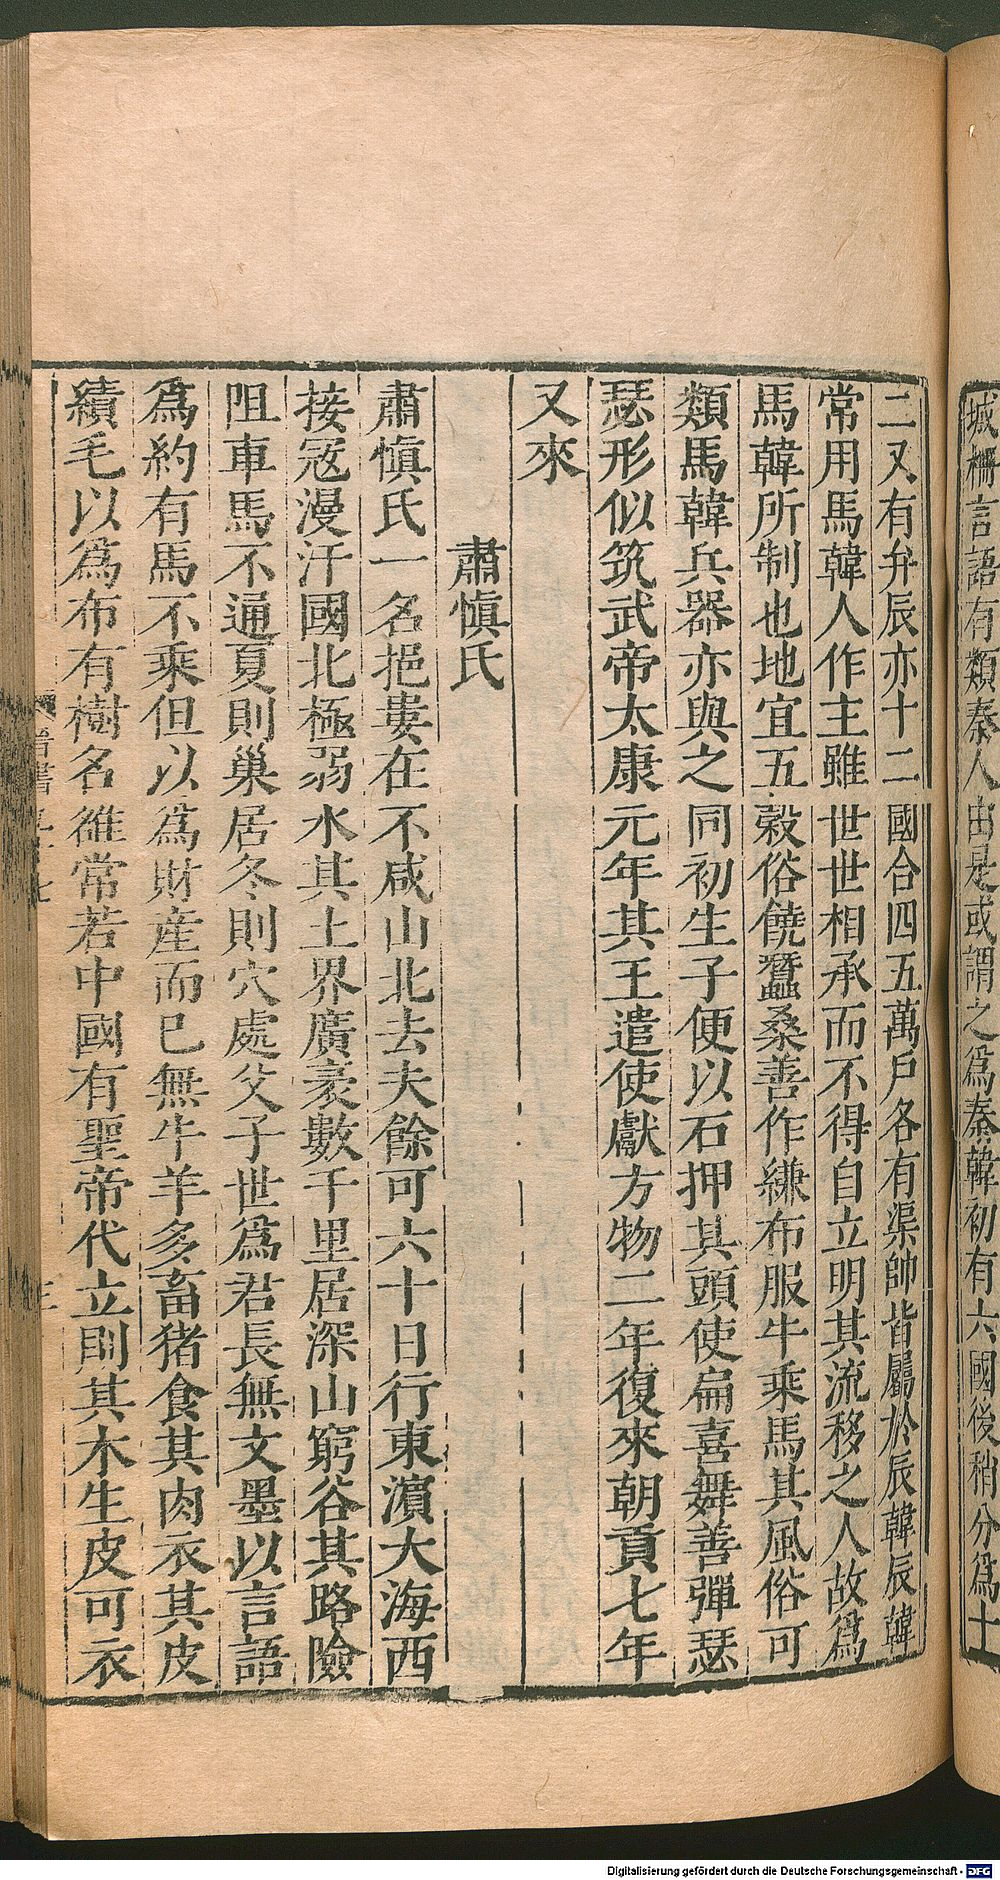 城柵言語有類秦人由是或謂之爲秦韓初有六國後稍分爲十
二又有弁辰亦十二國合四五萬戶各有渠帥皆屬於辰韓辰韓
常用馬韓人作主雖世世相承而不得自立明其流移之人故爲
馬韓所制也地宜五穀俗饒蠶桑善作縑布服牛乘馬其風俗可
類馬韓兵器亦與之同初生子便以石押其頭使扁喜舞善彈瑟
瑟形似筑武帝太康元年其王遣使獻方物二年復來朝貢七年
又來
肅愼氏
肅愼氏一名挹婁在不咸山北去夫餘可六十日行東濵大海西
接寇漫汗國北極弱水其土界廣袤數千里居深山窮谷其路險
阻車馬不通夏則巢居冬則穴處父子世爲君長無文墨以言語
爲約有馬不乘但以爲財產而已無牛羊多畜猪食其肉衣其皮
績毛以爲布有樹名雒常若中國有聖帝代立則其木生皮可衣
晉書
Digitalisierung gefördert durch die Deutsche Forschungsgemeinschaft - DFG